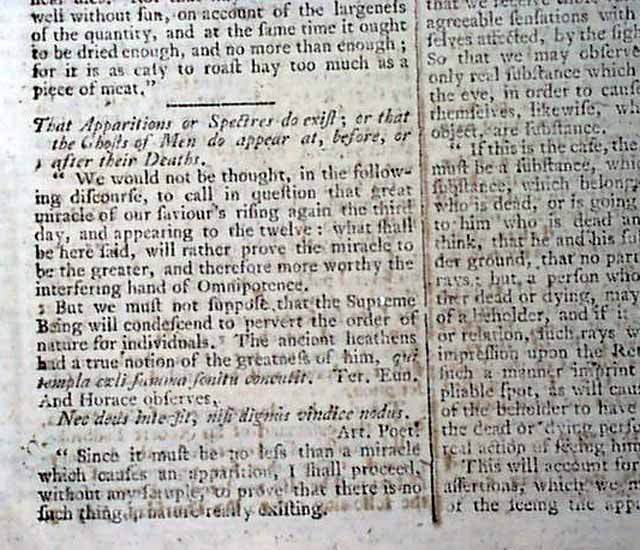 well without sun, on account of the largeness
of the quantity, and at the same time it ought
to be dried enough, and no more than enough;
for it is as easy to roast hay too much as a
piece of meat."
That Apparitions or Spectres do exist; or that
the Ghosts of Men do appear at, before, or
after their Deaths.
" We would not be thought, in the follow-
ing discourse, to call in question that great
miracle of our saviour's rising again the third
day, and appearing to the twelve: what shall
be here said, will rather prove the miracle to
be the greater, and therefore more worthy the
interfering hand of Omnipotence.
But we must not suppose that the Supreme
Being will condescend to pervert the order of
nature for individuals. The ancient heathens
had a true notion of the greatness of him, qui
templa cæli summa sonitu concutit. Ter. Eun.
And Horace observes,
Nec deus intersit, nisi dignus vindice nodus.
Art. Poet.
" Since it must be no less than a miracle
which causes an apparition, I shall proceed,
without any scruple, to prove that there is no
such thing in nature really existing.
that we receive
agreeable sensations with
selves affected, by the sigh
So that we may observe
only real substance which
the eye, in order to cause
themselves, likewise, wh
object, are substance.
" If this is the case, the
must be a substance, whi
substance, which belong
who is dead, or is going
to him who is dead an
think, that he and his su
der ground, that no part
rays; but, a person who
ther dead or dying, may
of a beholder, and if it
or relation, such rays w
impression upon the Ret
such a manner imprint
pliable spot, as will cau
of the beholder to have
the dead or dying perso
real action of seeing him
This will account for
assertions, which we m
of the seeing the appa